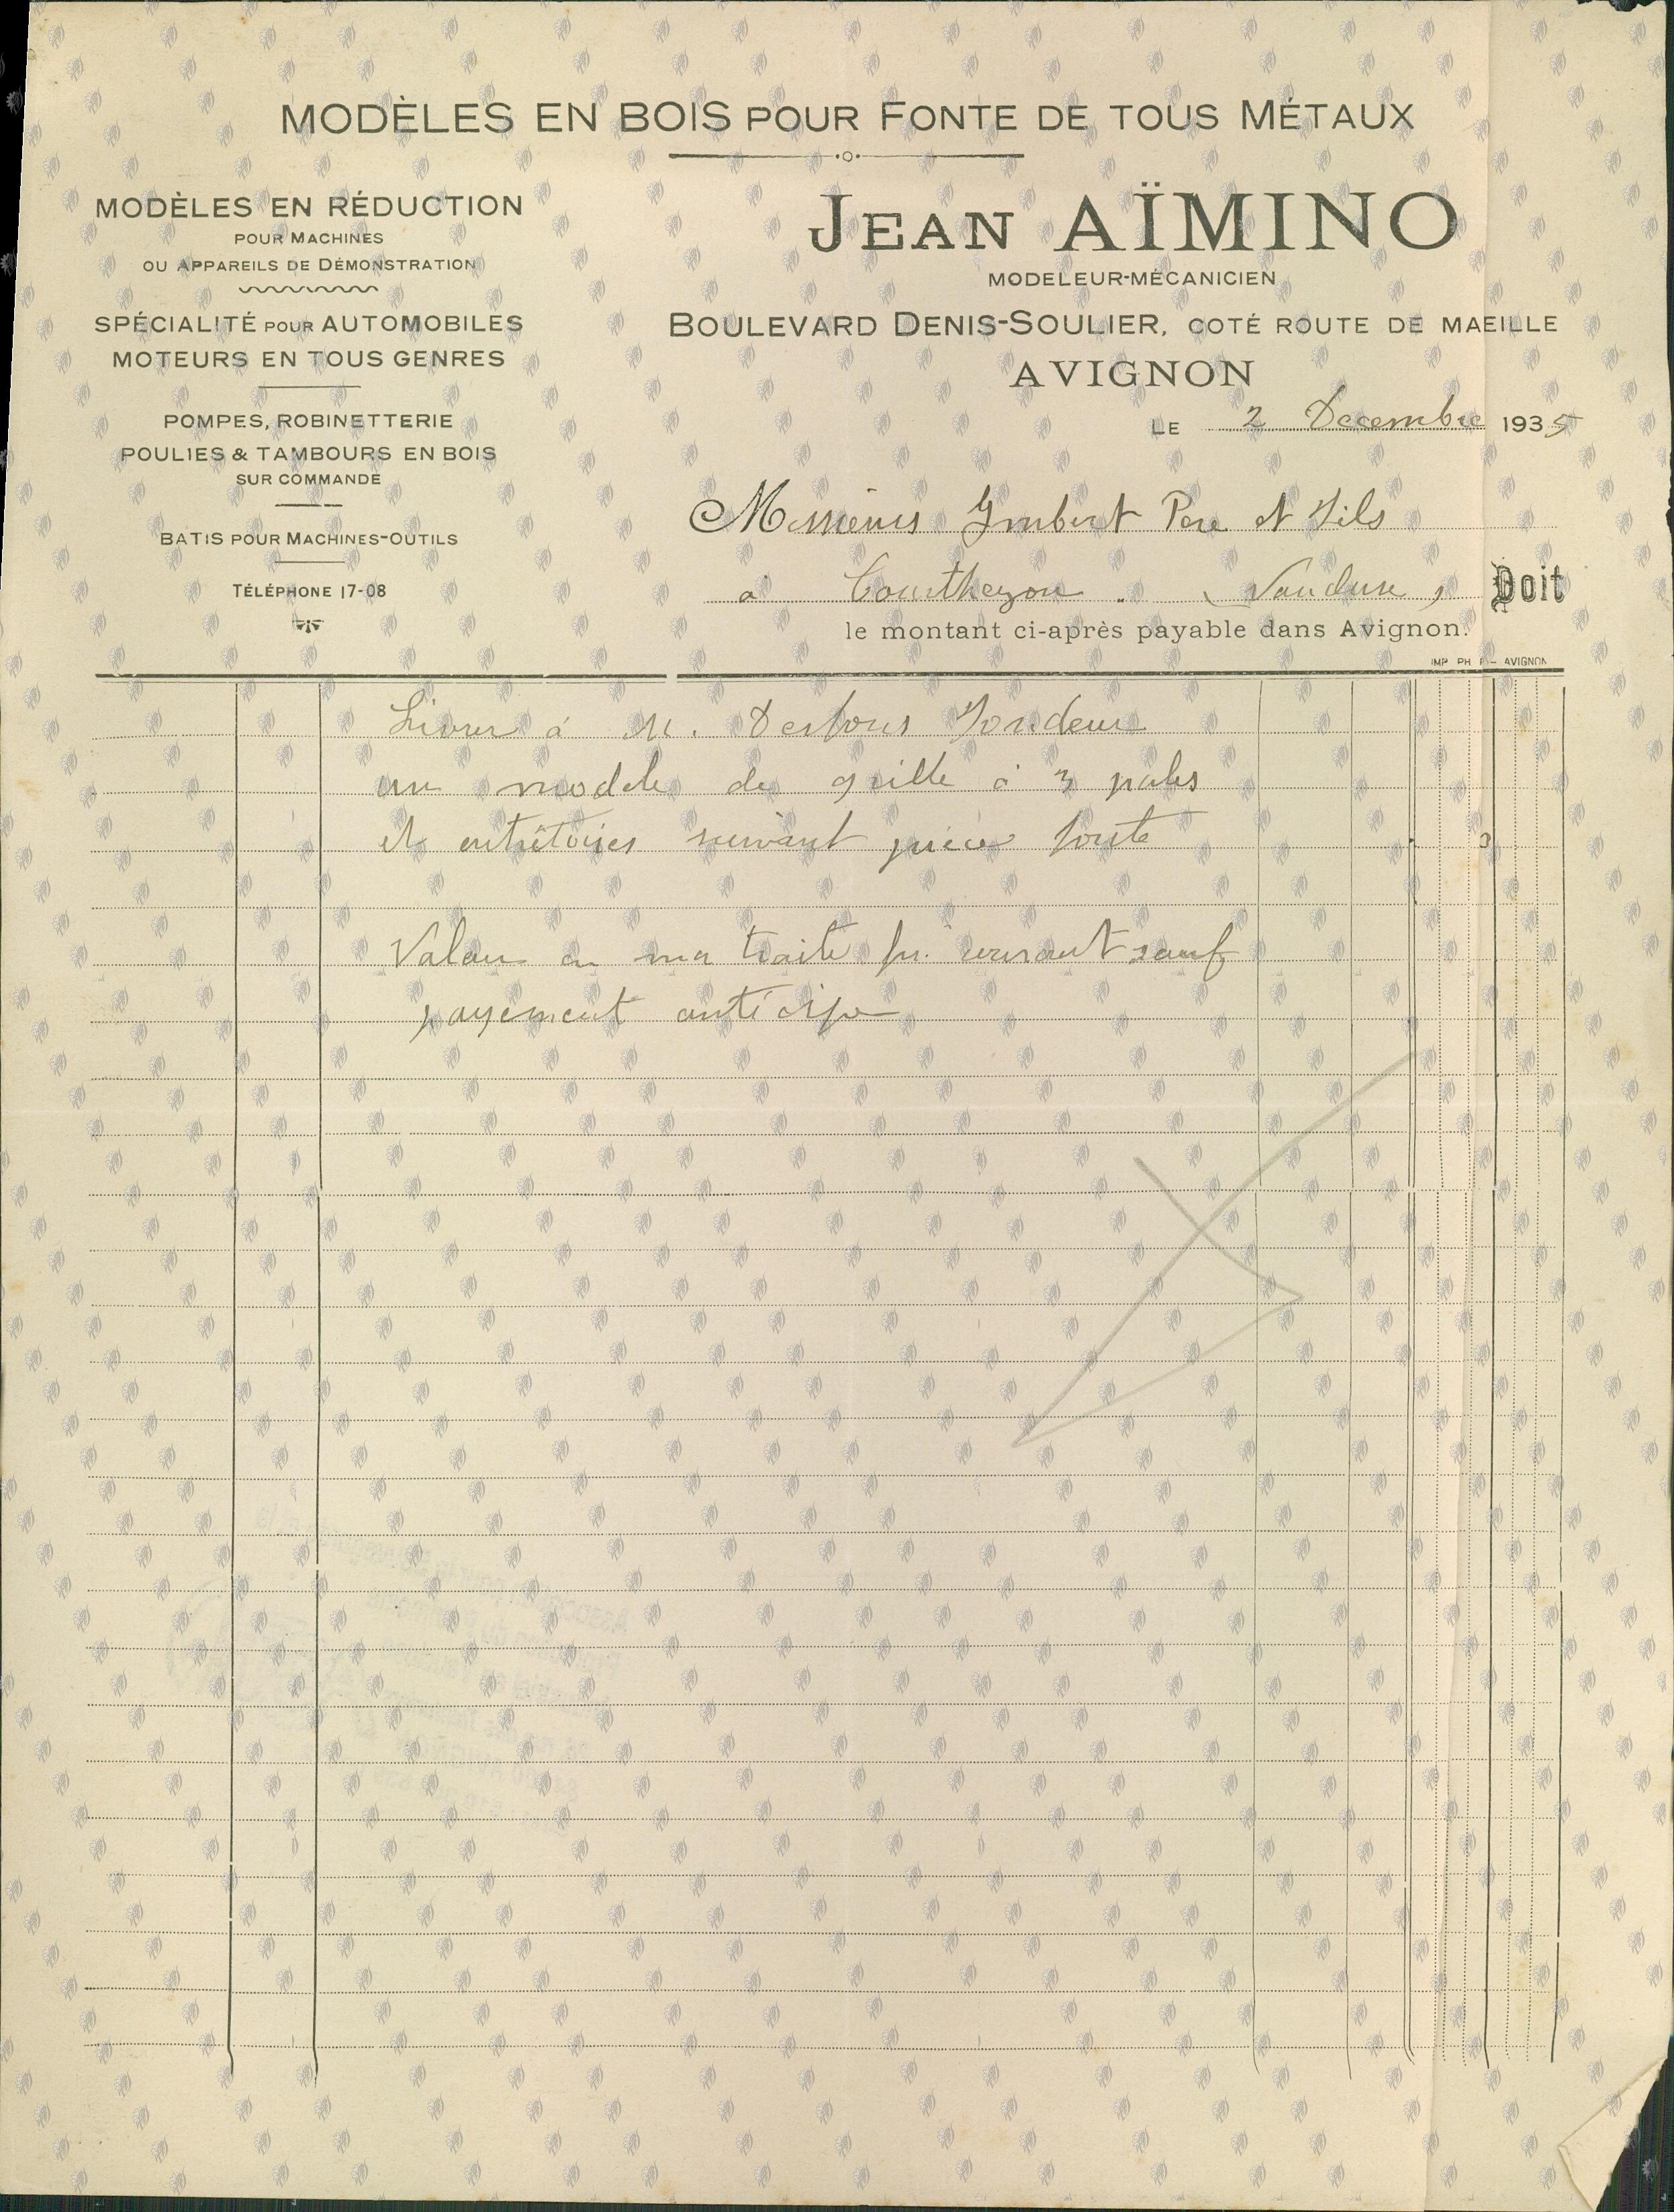 MODÈLES EN BOIS POUR FONTE DE TOUS MÉTAUX
MODÈLES EN RÉDUCTION
POUR MACHINES
OU APPAREILS DE DÉMONSTRATION
SPÉCIALITÉ POUR AUTOMOBILES
MOTEURS EN TOUS GENRES
POMPES, ROBINETTERIE
POULIES & TAMBOURS EN BOIS
SUR COMMANDE
BATIS POUR MACHINES-OUTILS
TÉLÉPHONE 17-08
JEAN AÏMINO
MODELEUR-MÉCANICIEN
BOULEVARD DENIS-SOULIER, COTÉ ROUTE DE MAEILLE
AVIGNON
LE 2 Decembre 1935
Messieurs Imbert Pere et Fils
à Courthezon. (Vaucluse) Doit
le montant ci-après payable dans Avignon.
IMP PH - AVIGNON
Livrer à M. Desfons Fondeur
un modele de grille à 3 pales
et entretoises suivant pièce fonte
Valeur en ma traite fin courant sauf
payement anticipe